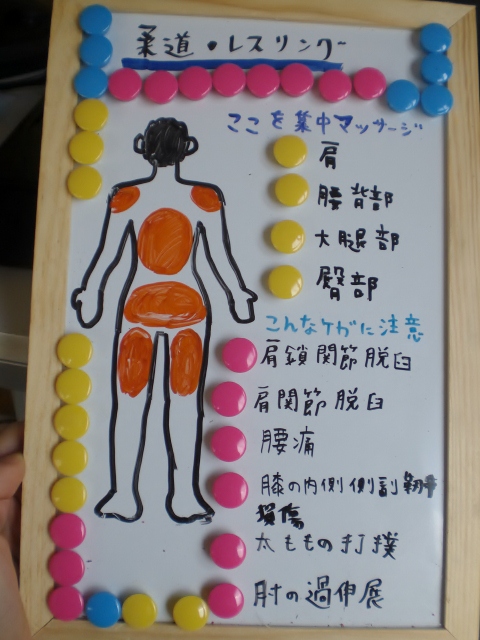 柔道・レスリング
ここを集中マッサージ
肩
腰背部
大腿部
臀部
こんなケガに注意
肩鎖関節脱臼
肩関節脱臼
腰痛
膝の内側側副靭帯
損傷
太ももの打撲
肘の過伸展